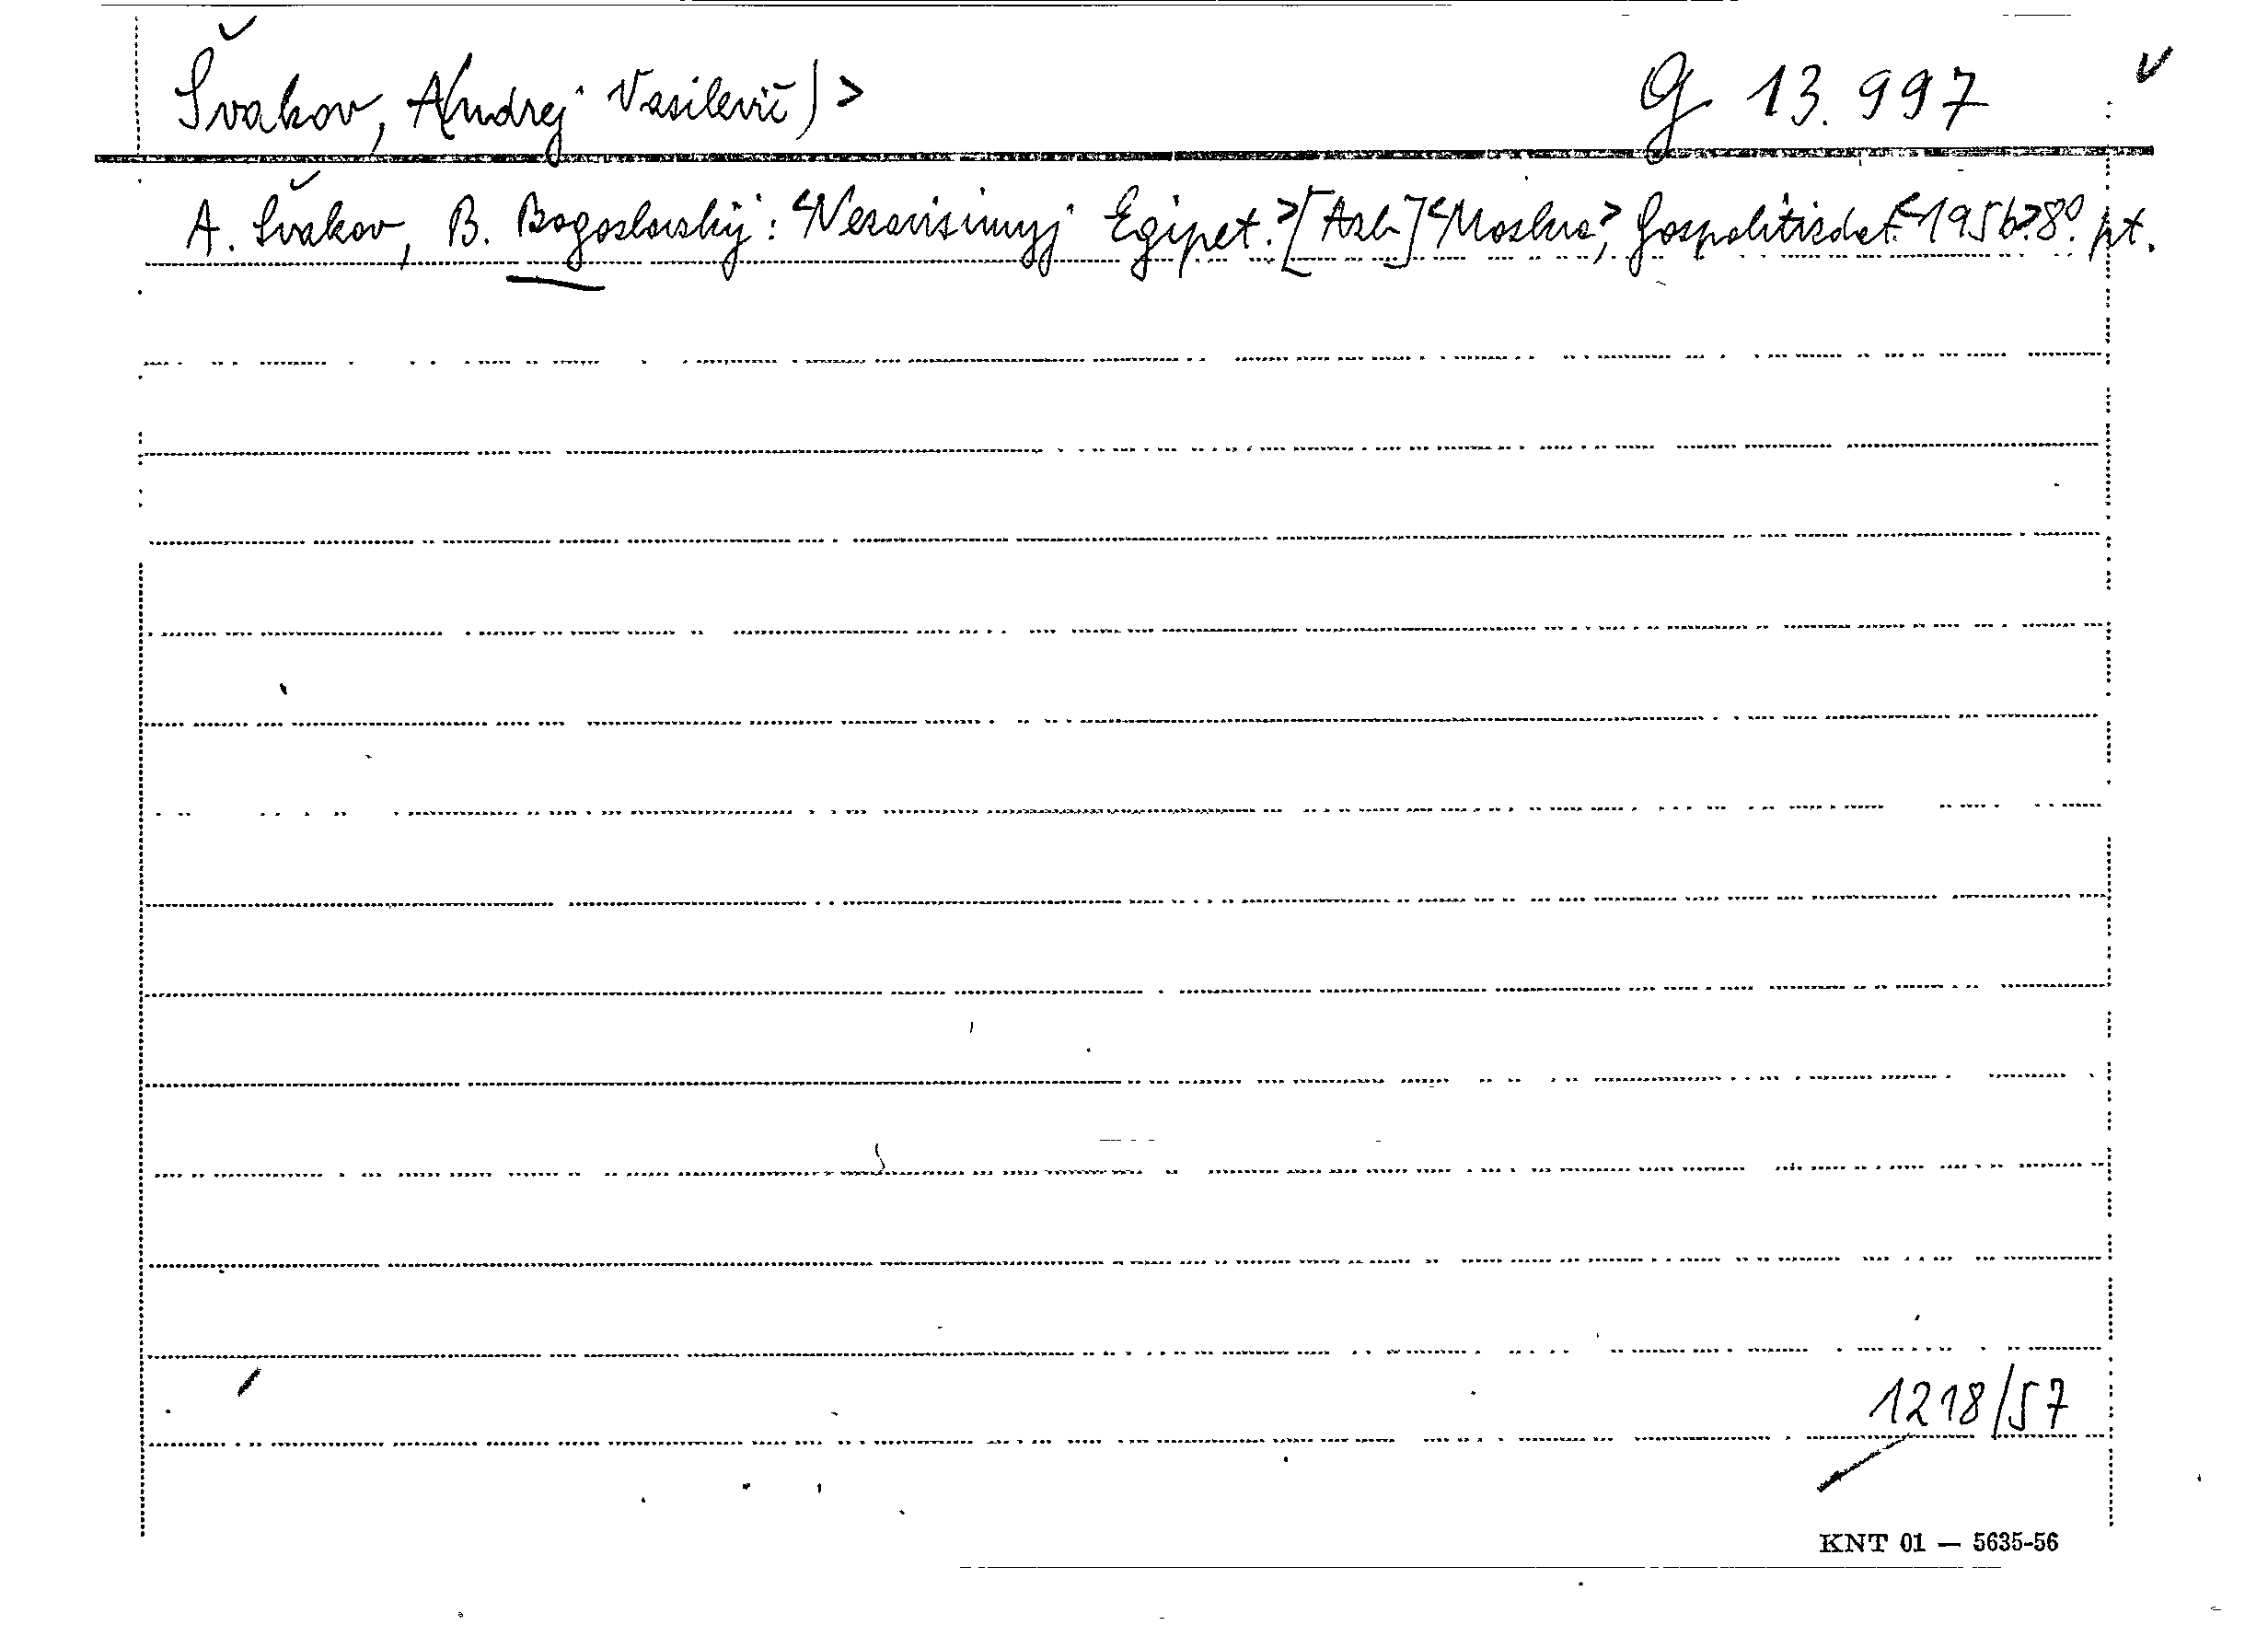 Švakov, A(ndrej Vasilevič) > G 13.997
A. Švakov, B. Bogoslovskij: <Nezavisimyj Egipet.> [Azb.] <Moskva>, Gospolitizdat. <1956>. 8°. pt.
1218/57
KNT 01 — 5635-56